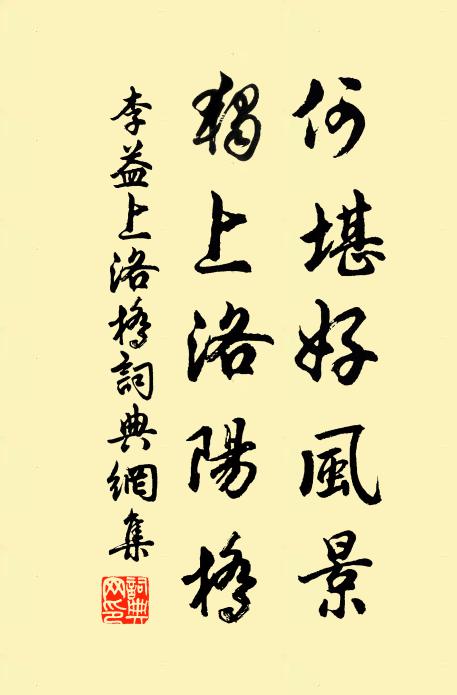 何堪好風景
獨上洛陽橋
李益上洛橋詞典網集
詞典
网印